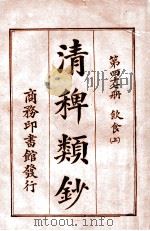 第四十七冊 飲食(上)
清稗類鈔
商務印書館發行